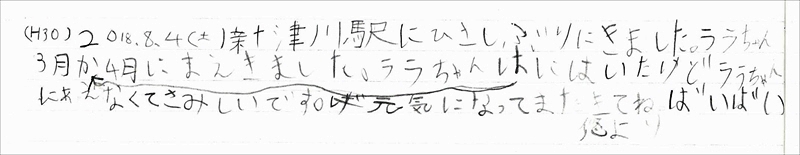 (H30) 2018.8.4(土)新十津川駅にひさしぶりにきました。ララちゃん
3月か4月にまえきました。ララちゃんはにはいたけどララちゃん
にあえなくてさみしいです。元気になってまたきてね ばいばい
より